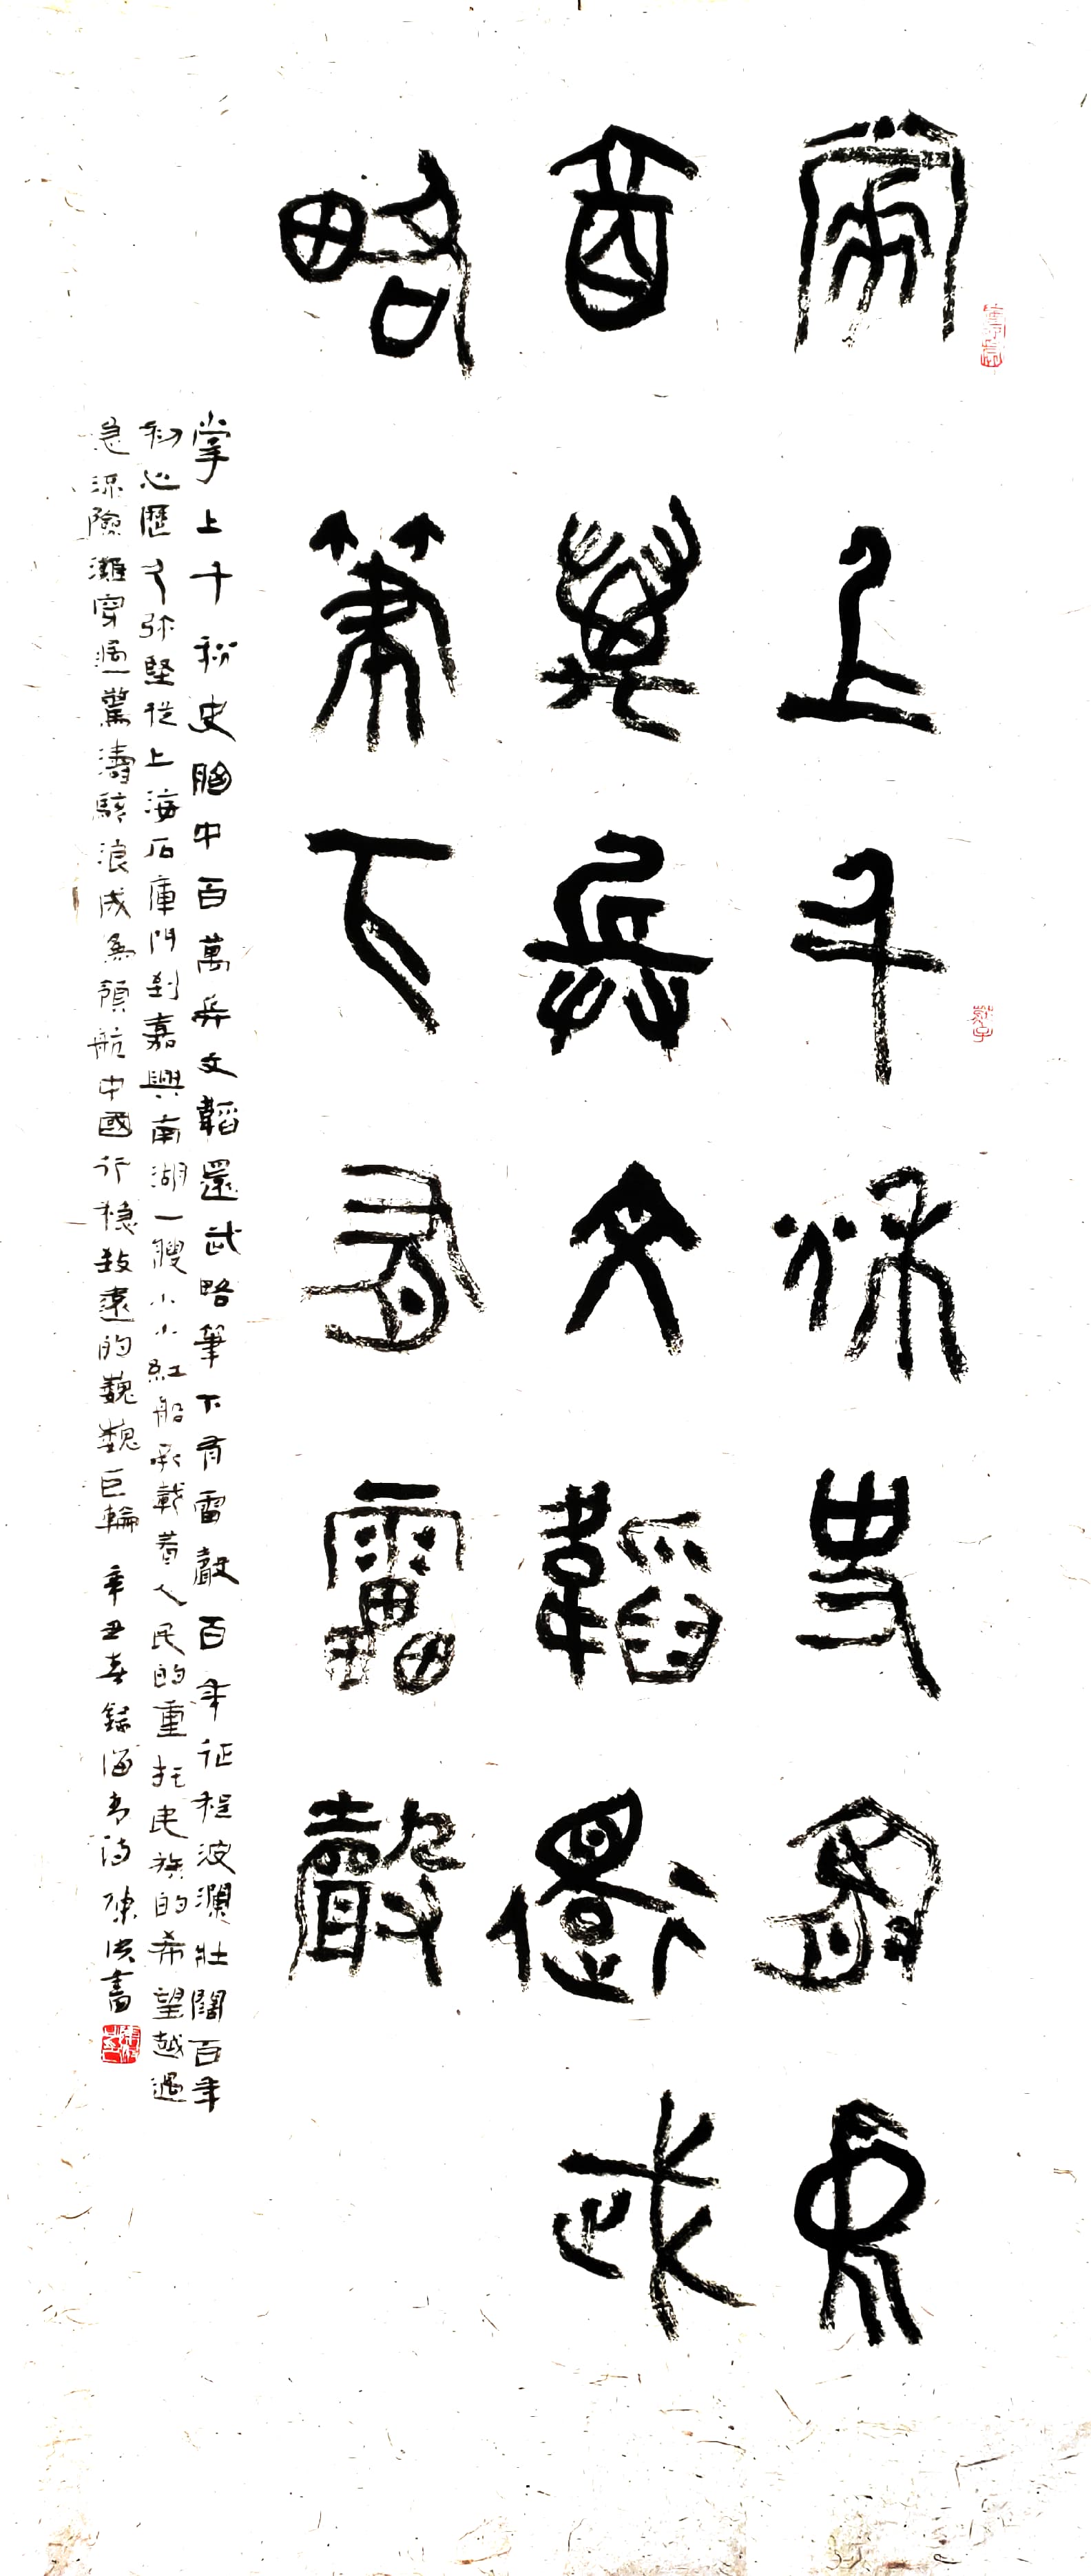 掌上千秋史胸中
百萬兵文韜還武
略筆下有雷聲
掌上千秋史胸中百萬兵文韜還武略筆下有雷聲百年征程波瀾壯闊百年
初心歷久弥堅從上海石庫門到嘉興南湖一艘小小紅船承載着人民的重托民族的希望越過
急流險灘穿過驚濤駭浪成為領航中國行穩致遠的巍巍巨輪 辛丑春錄 詩陳洪書